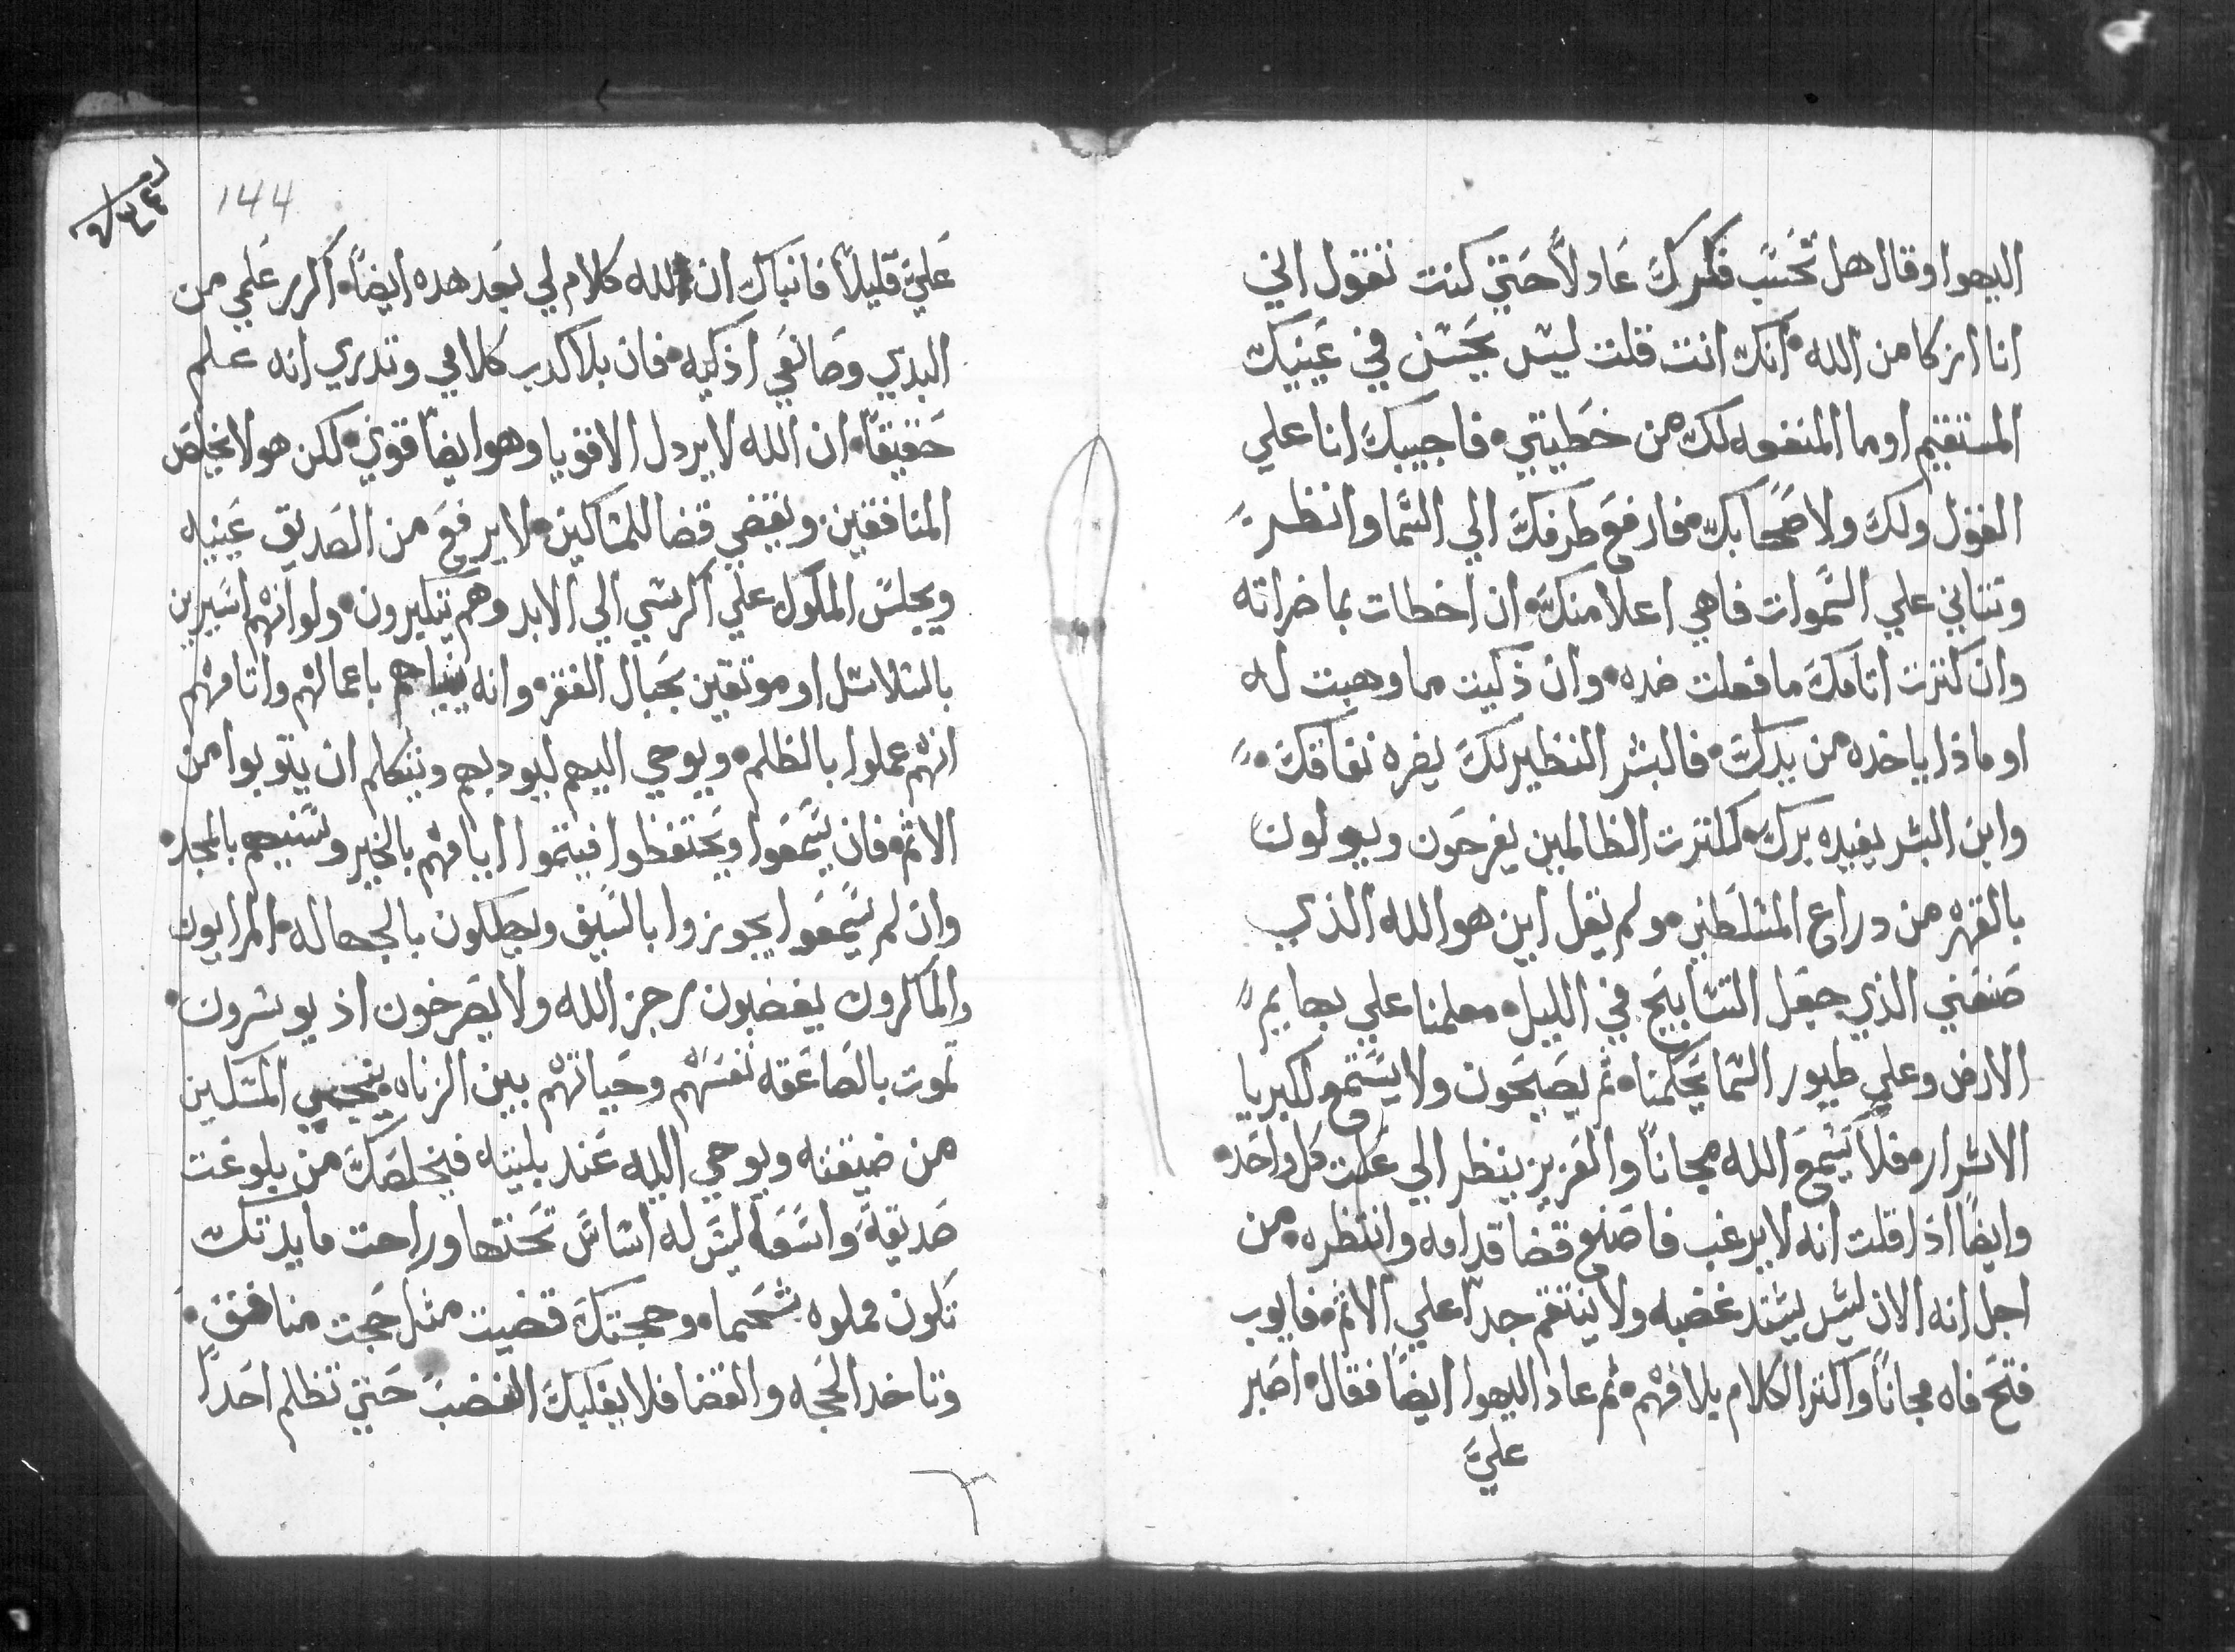 اليهوا وقال هل تحسب فكرك عادلاً حتي كنت تقول اني
انا ازكا من الله انك انت قلت ليس يحسن في عينيك
المستقيم اوما المنفعه لك من خطيتي فاجيبك انا علي
القول ولك ولاصحابك فارفع طرفك الي السما وانظر
وتتاني علي السموات فاهي اعلا منك ان اخطات بماضراته
وان كترت اتامك مافعلت ضده وان ذكيت ما وهبت له
اوماذا ياخده من يدك فالبشر النظير لك يضره نفاقك
وابن البشر يفيده برك كلترت الظالمين يفرحون ويولولون
بالقهر من دراع المتسلطين ولم يقل اين هو الله الذي
صنعني الذي جعل التسابيح في الليل معلمنا علي بهايم
الارض وعلي طيور السما يحكمنا ثم يصيحون ولا يستمع لكبريا
الاشرار فلا يسمع الله مجاناً والعزيز ينظر الي علت كل واحد
وايضاً اذا قلت انه لا يرغب فاصنع قضا قدامه وانتظره من
اجل انه الان ليس يشتد غضبه ولا ينتقم جداً علي الاثم فايوب
فتح فاه مجاناً واكتر الكلام بلا فهم ثم عاد اليهوا ايضاً فقال اصبر
عليَّ
144
عليَّ قليلاً فانباك ان لله كلام لي بعد هده ايضاً اكرر علمي من
البدي وصانعي اذكيه فان بلا كدب كلامي وتدري انه علم
حقيقاً ان الله لا يردل الاقويا وهو ايضا قوي لكن هو لا يخلص
المنافقين ويقضي قضا للمساكين لا يرفع من الصديق عينيه
ويجلس الملوك علي الكرسي الي الابد وهم يتكبرون ولو انهم اسيرين
بالسلاسل او موثقين بحبال الفقر وانه ينباهم باعمالهم واتامهم
انهم عملوا بالظلم ويوحي اليهم ليوديهم ويتكلم ان يتوبوا من
الاثم فان يسمعوا ويحتفظوا فيتموا ايامهم بالخير وسنيهم بالمجد
وان لم يسمعوا يجوزوا بالسيف ويهلكون بالجهاله المرايون
والماكرون يغضبون رجز الله ولا يصرخون اذ يوسرون
تموت بالصاعقه نفسهم وحياتهم بين الزناه ينجي المسكين
من ضيقته ويوحي اليه عند بليته فيخلصك من بلوغت
صديقة واسعه ليس له اساس تحتها وراحت مايدتك
تكون مملوه شحما وحجتك قضيت مثل حجت منافق
وتاخد الحجه والقضا فلا يغلبك الغضب حتي تظلم احداً